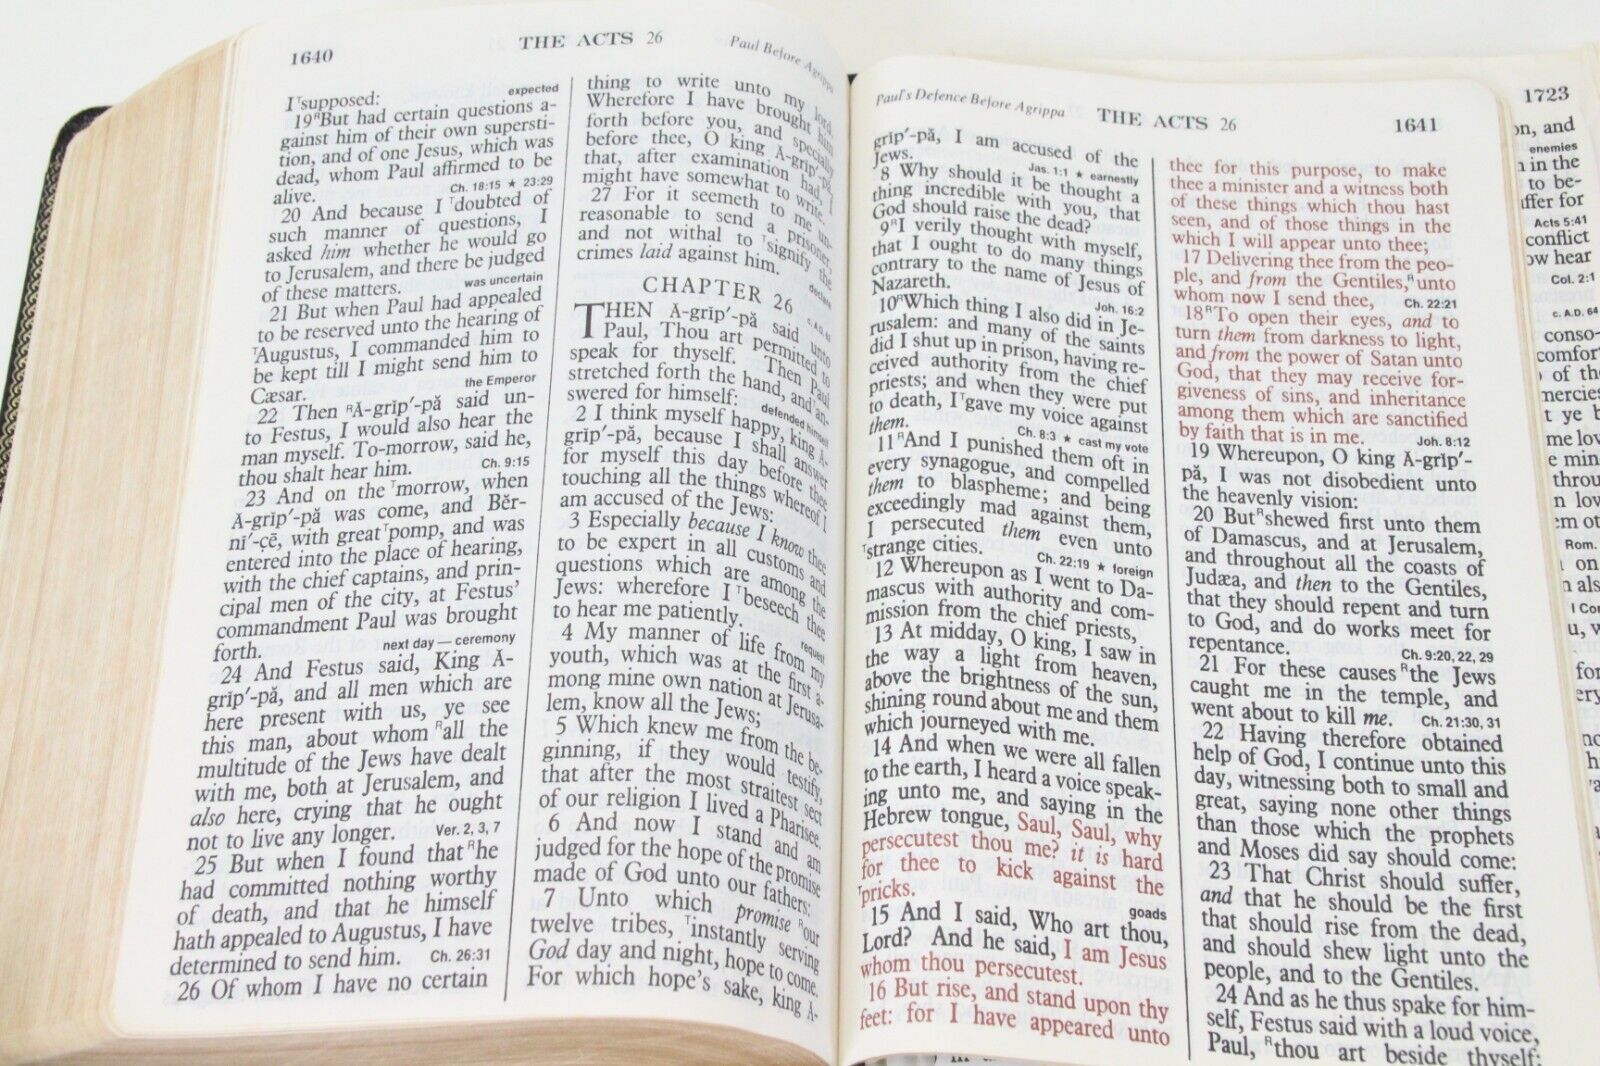 1640
THE ACTS 26
Paul Before Agrippa
expected
I ᵀsupposed:
19ᴿBut had certain questions a-
gainst him of their own supersti-
tion, and of one Jesus, which was
dead, whom Paul affirmed to be
alive. Ch. 18:15 ★ 23:29
20 And because I ᵀdoubted of
such manner of questions, I
asked him whether he would go
to Jerusalem, and there be judged
of these matters. was uncertain
21 But when Paul had appealed
to be reserved unto the hearing of
ᵀAugustus, I commanded him to
be kept till I might send him to
Cæsar. the Emperor
22 Then ᴿĀ-grĭp′-pă said un-
to Festus, I would also hear the
man myself. To-morrow, said he,
thou shalt hear him. Ch. 9:15
23 And on the ᵀmorrow, when
Ā-grĭp′-pă was come, and Bẽr-
nī′-çē, with great ᵀpomp, and was
entered into the place of hearing,
with the chief captains, and prin-
cipal men of the city, at Festus'
commandment Paul was brought
forth. next day — ceremony
24 And Festus said, King Ā-
grĭp′-pă, and all men which are
here present with us, ye see
this man, about whom ᴿall the
multitude of the Jews have dealt
with me, both at Jerusalem, and
also here, crying that he ought
not to live any longer. Ver. 2, 3, 7
25 But when I found that ᴿhe
had committed nothing worthy
of death, and that he himself
hath appealed to Augustus, I have
determined to send him. Ch. 26:31
26 Of whom I have no certain
thing to write unto my lord.
Wherefore I have brought him
forth before you, and specially
before thee, O king Ā-grĭp′-pă,
that, after examination had, I
might have somewhat to write.
27 For it seemeth to me un-
reasonable to send a prisoner,
and not withal to ᵀsignify the
crimes laid against him. declare
CHAPTER 26
THEN Ā-grĭp′-pă said unto
Paul, Thou art permitted to
speak for thyself. Then Paul
stretched forth the hand, and ᵀan-
swered for himself: defended himself
2 I think myself happy, king Ā-
grĭp′-pă, because I shall answer
for myself this day before thee
touching all the things whereof I
am accused of the Jews:
3 Especially because I know thee
to be expert in all customs and
questions which are among the
Jews: wherefore I ᵀbeseech thee
to hear me patiently. request
4 My manner of life from my
youth, which was at the first a-
mong mine own nation at Jerusa-
lem, know all the Jews;
5 Which knew me from the be-
ginning, if they would testify,
that after the most straitest sect
of our religion I lived a Pharisee.
6 And now I stand and am
judged for the hope of the promise
made of God unto our fathers:
7 Unto which promise ᴿour
twelve tribes, ᵀinstantly serving
God day and night, hope to come.
For which hope's sake, king Ā-
Paul's Defence Before Agrippa
THE ACTS 26
1641
grĭp′-pă, I am accused of the
Jews. Jas. 1:1 ★ earnestly
8 Why should it be thought a
thing incredible with you, that
God should raise the dead?
9ᴿI verily thought with myself,
that I ought to do many things
contrary to the name of Jesus of
Nazareth. Joh. 16:2
10ᴿWhich thing I also did in Je-
rusalem: and many of the saints
did I shut up in prison, having re-
ceived authority from the chief
priests; and when they were put
to death, I ᵀgave my voice against
them. Ch. 8:3 ★ cast my vote
11ᴿAnd I punished them oft in
every synagogue, and compelled
them to blaspheme; and being
exceedingly mad against them,
I persecuted them even unto
ᵀstrange cities. Ch. 22:19 ★ foreign
12 Whereupon as I went to Da-
mascus with authority and com-
mission from the chief priests,
13 At midday, O king, I saw in
the way a light from heaven,
above the brightness of the sun,
shining round about me and them
which journeyed with me.
14 And when we were all fallen
to the earth, I heard a voice speak-
ing unto me, and saying in the
Hebrew tongue, Saul, Saul, why
persecutest thou me? it is hard
for thee to kick against the
ᵀpricks. goads
15 And I said, Who art thou,
Lord? And he said, I am Jesus
whom thou persecutest.
16 But rise, and stand upon thy
feet: for I have appeared unto
thee for this purpose, to make
thee a minister and a witness both
of these things which thou hast
seen, and of those things in the
which I will appear unto thee;
17 Delivering thee from the peo-
ple, and from the Gentiles,ᴿunto
whom now I send thee, Ch. 22:21
18ᴿTo open their eyes, and to
turn them from darkness to light,
and from the power of Satan unto
God, that they may receive for-
giveness of sins, and inheritance
among them which are sanctified
by faith that is in me. Joh. 8:12
19 Whereupon, O king Ā-grĭp′-
pă, I was not disobedient unto
the heavenly vision:
20 But ᴿshewed first unto them
of Damascus, and at Jerusalem,
and throughout all the coasts of
Judæa, and then to the Gentiles,
that they should repent and turn
to God, and do works meet for
repentance. Ch. 9:20, 22, 29
21 For these causes ᴿthe Jews
caught me in the temple, and
went about to kill me. Ch. 21:30, 31
22 Having therefore obtained
help of God, I continue unto this
day, witnessing both to small and
great, saying none other things
than those which the prophets
and Moses did say should come:
23 That Christ should suffer,
and that he should be the first
that should rise from the dead,
and should shew light unto the
people, and to the Gentiles.
24 And as he thus spake for him-
self, Festus said with a loud voice,
Paul, ᴿthou art beside thyself:
1723
on, and
enemies
in the
to be-
Acts 5:41
conflict
ow hear
Col. 2:1
c. A.D. 64
conso-
comfor
of th
mercies
t ye b
me lov
e min
throu
n lov
Rom.